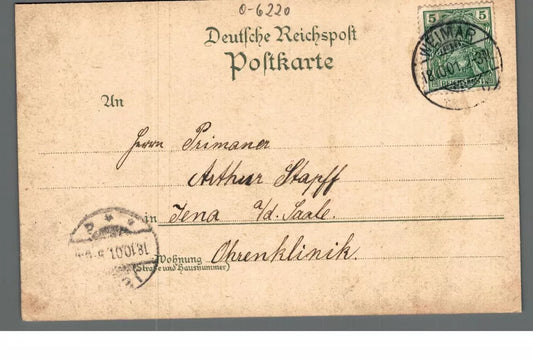 0-6220
Deutsche Reichspost
Postkarte
5 5
WEIMAR
18.10.01.
An
Herrn Primaner
Arthur Stapff
in Jena a/d. Saale.
Wohnung Ohrenklinik.
(Straße und Hausnummer)
18.10.01.